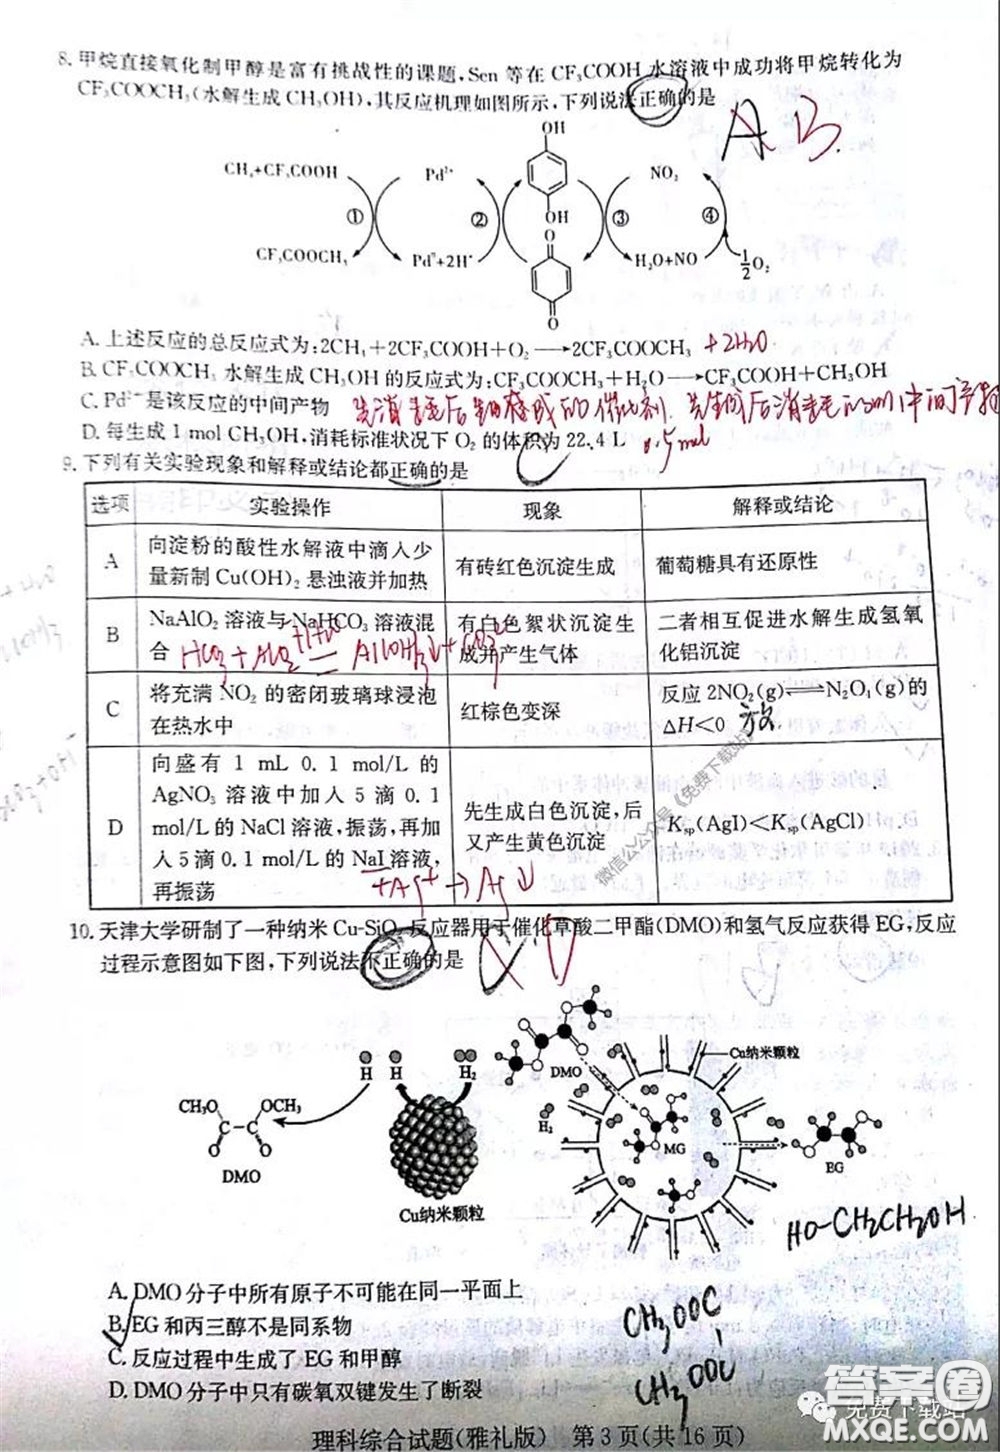 8. 甲烷直接氧化制甲醇是富有挑战性的课题,Sen 等在 CF₃COOH 水溶液中成功将甲烷转化为
CF₃COOCH₃(水解生成 CH₃OH),其反应机理如图所示,下列说法正确的是
A B
OH
CH₄+CF₃COOH
Pd²⁺
NO₂
①
②
OH
③
④
O
CF₃COOCH₃
Pd⁰+2H⁺
H₂O+NO
½O₂
O
A. 上述反应的总反应式为:2CH₄+2CF₃COOH+O₂⟶2CF₃COOCH₃ +2H₂O
B. CF₃COOCH₃ 水解生成 CH₃OH 的反应式为:CF₃COOCH₃+H₂O⟶CF₃COOH+CH₃OH
C. Pd²⁺是该反应的中间产物
D. 每生成 1 mol CH₃OH,消耗标准状况下 O₂ 的体积为 22.4 L 0.5mol
9. 下列有关实验现象和解释或结论都正确的是
选项 实验操作 现象 解释或结论
A 向淀粉的酸性水解液中滴入少 有砖红色沉淀生成 葡萄糖具有还原性
量新制 Cu(OH)₂ 悬浊液并加热
B NaAlO₂ 溶液与 NaHCO₃ 溶液混 有白色絮状沉淀生 二者相互促进水解生成氢氧
合 成并产生气体 化铝沉淀
C 将充满 NO₂ 的密闭玻璃球浸泡 红棕色变深 反应 2NO₂(g)⇌N₂O₄(g)的
在热水中 ΔH<0
D 向盛有 1 mL 0.1 mol/L 的
AgNO₃ 溶液中加入 5 滴 0.1 先生成白色沉淀,后
mol/L 的 NaCl 溶液,振荡,再加 又产生黄色沉淀 Kₛₚ(AgI)<Kₛₚ(AgCl)
入 5 滴 0.1 mol/L 的 NaI 溶液,
再振荡
微信公众号《免费下载站》
10. 天津大学研制了一种纳米 Cu-SiO₂ 反应器用于催化草酸二甲酯(DMO)和氢气反应获得 EG,反应
过程示意图如下图,下列说法不正确的是
D
H H H₂
CH₃O OCH₃
C—C
O O
DMO
Cu纳米颗粒
DMO
H₂
MG
Cu纳米颗粒
EG
HO-CH₂CH₂OH
A. DMO 分子中所有原子不可能在同一平面上
B. EG 和丙三醇不是同系物
C. 反应过程中生成了 EG 和甲醇
D. DMO 分子中只有碳氧双键发生了断裂
CH₃OOC
CH₃OOC
理科综合试题(雅礼版) 第 3 页(共 16 页)
免费下载站
答案圈
MXQE.COM